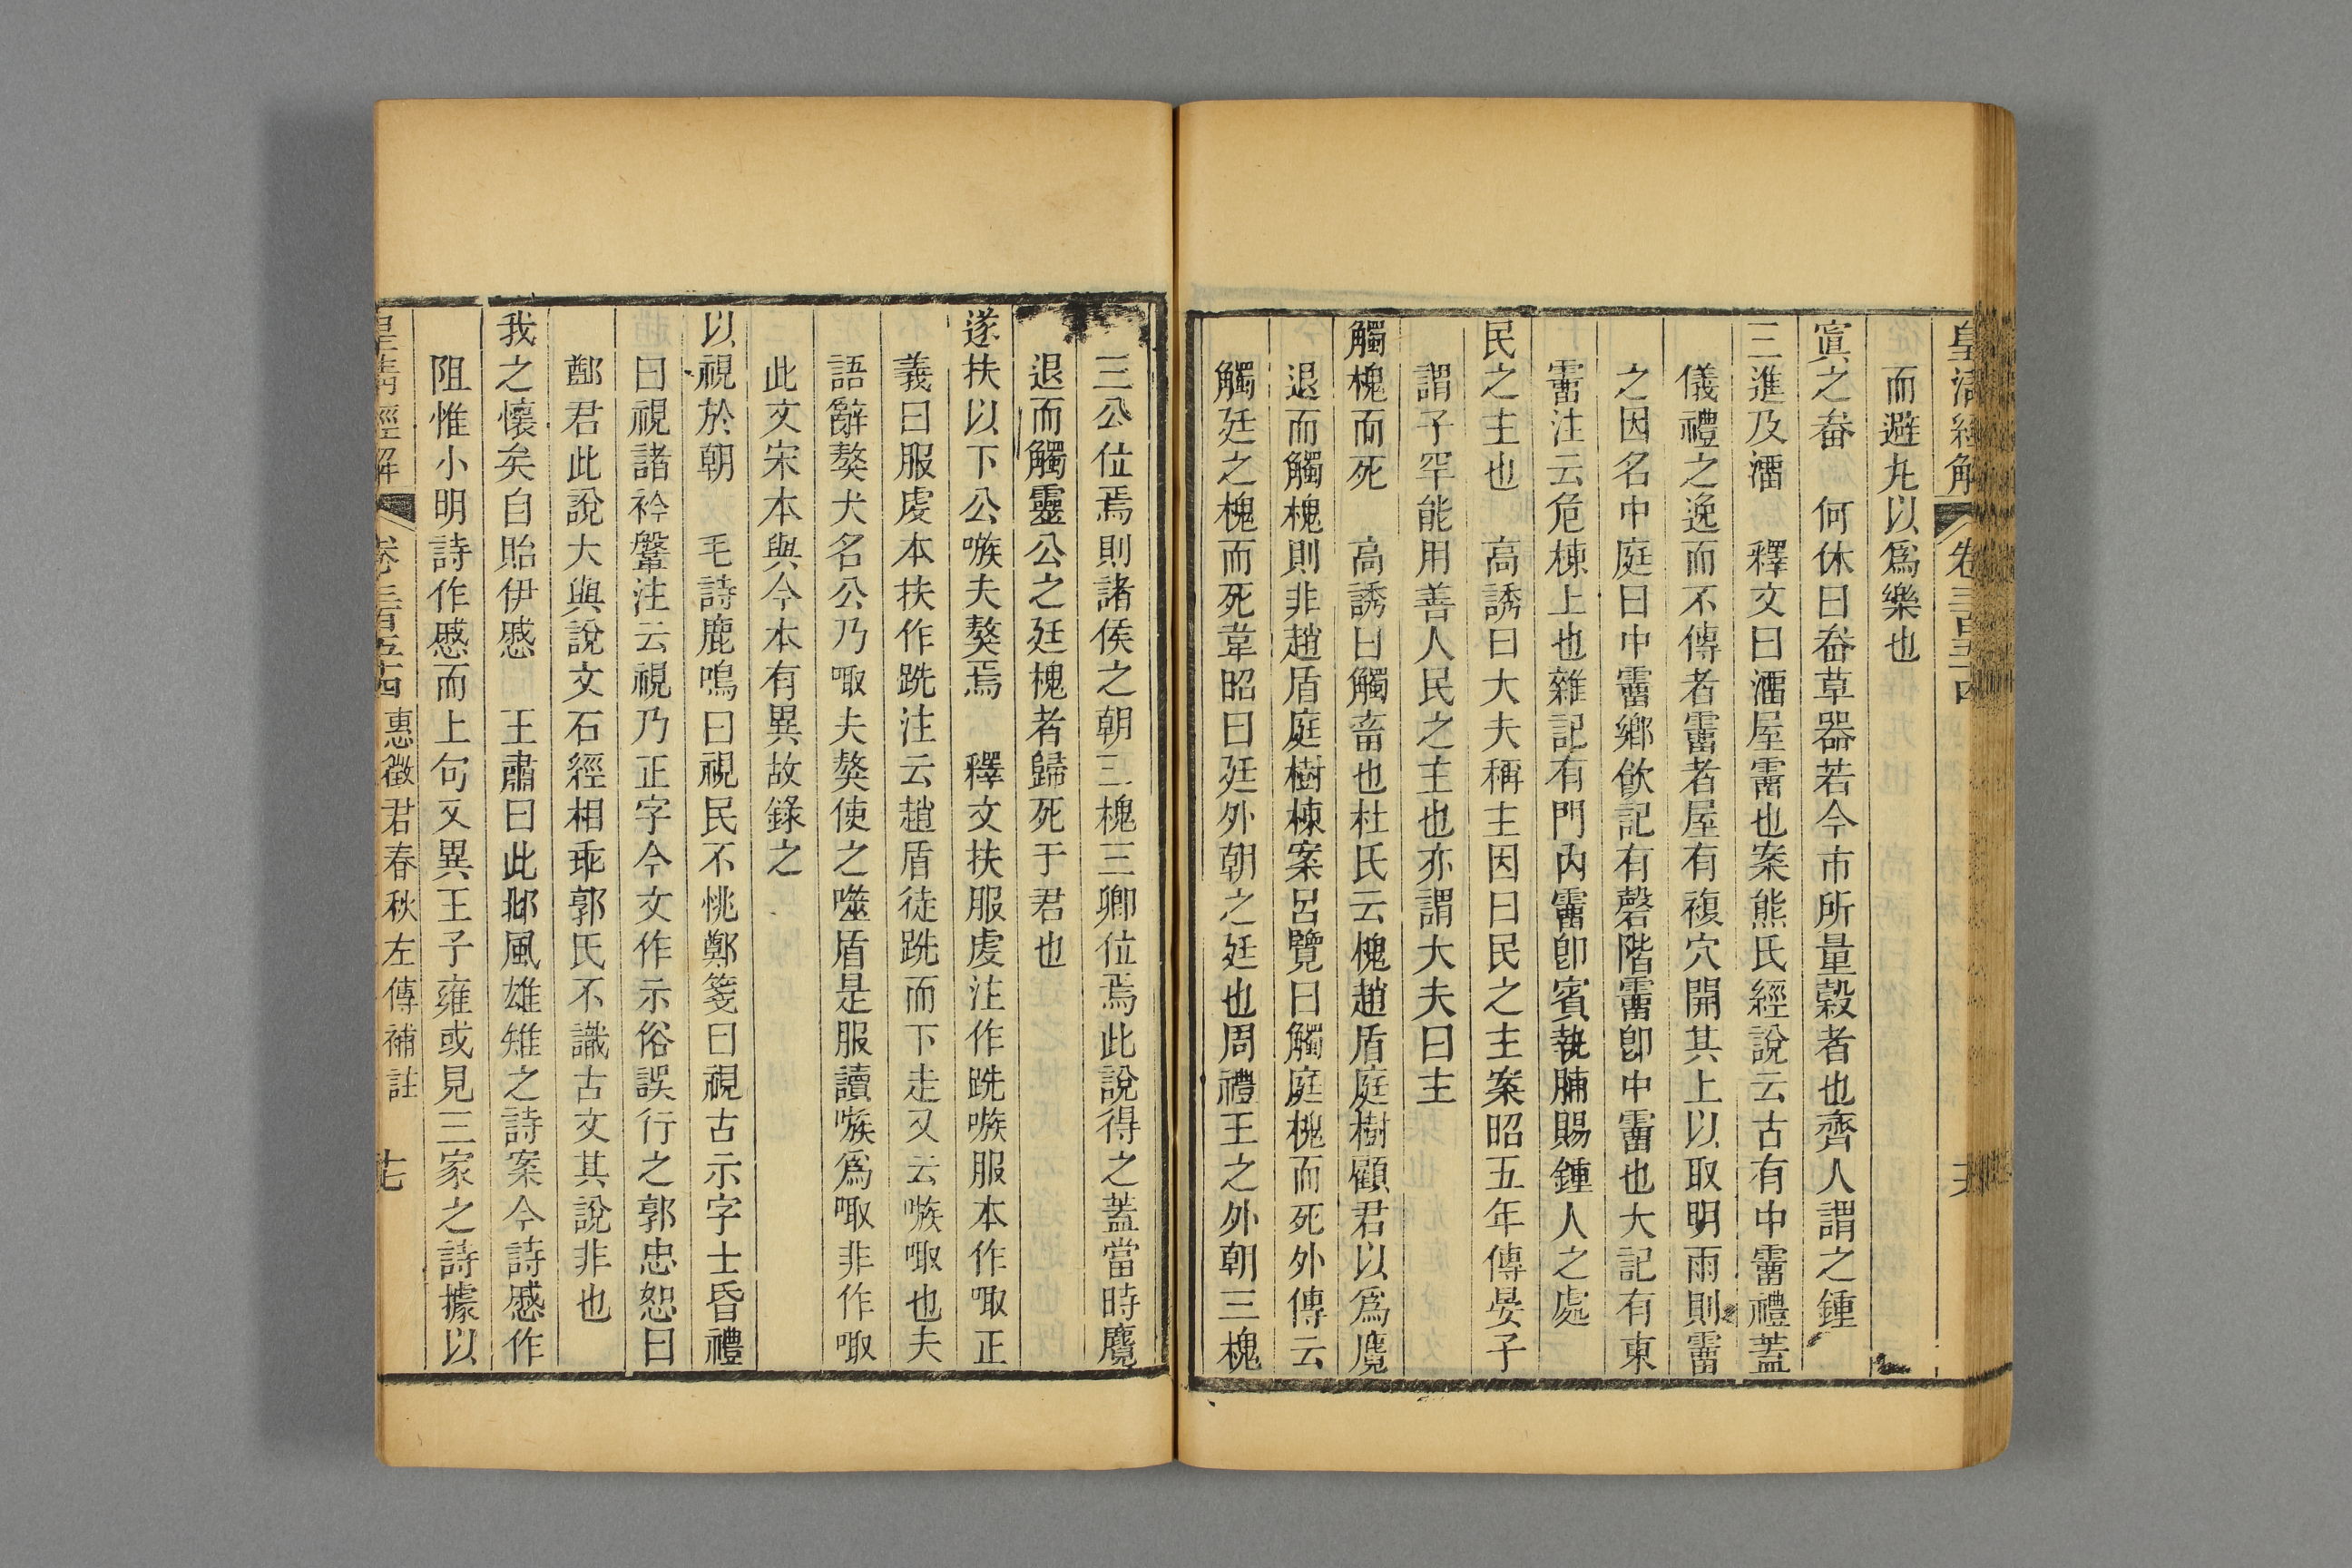 皇清經解 卷三百五十四 六
而避丸以爲樂也
寘之畚 何休曰畚草器若今市所量穀者也齊人謂之鍾
三進及溜 釋文曰溜屋霤也案熊氏經說云古有中霤禮蓋
儀禮之逸而不傳者霤者屋有複穴開其上以取明雨則霤
之因名中庭曰中霤鄉飮記有磬階霤卽中霤也大記有東
霤注云危棟上也雜記有門內霤卽賓執脯賜鍾人之處
民之主也 高誘曰大夫稱主因曰民之主案昭五年傳晏子
謂子罕能用善人民之主也亦謂大夫曰主
觸槐而死 高誘曰觸畜也杜氏云槐趙盾庭樹顧君以爲麑
退而觸槐則非趙盾庭樹棟案呂覽曰觸庭槐而死外傳云
觸廷之槐而死韋昭曰廷外朝之廷也周禮王之外朝三槐
三公位焉則諸侯之朝三槐三卿位焉此說得之蓋當時麑
退而觸靈公之廷槐者歸死于君也
遂扶以下公嗾夫獒焉 釋文扶服虔注作跣嗾服本作㖩正
義曰服虔本扶作跣注云趙盾徒跣而下走又云嗾㖩也夫
語辭獒犬名公乃㖩夫獒使之噬盾是服讀嗾爲㖩非作㖩
此文宋本與今本有異故錄之
以視於朝 毛詩鹿鳴曰視民不恌鄭箋曰視古示字士昏禮
曰視諸衿鞶注云視乃正字今文作示俗誤行之郭忠恕曰
鄭君此說大與說文石經相乖郭氏不識古文其說非也
我之懷矣自貽伊慼 王肅曰此邶風雄雉之詩案今詩慼作
阻惟小明詩作慼而上句又異王子雍或見三家之詩據以
皇清經解 卷三百五十四 惠徵君春秋左傳補註 七